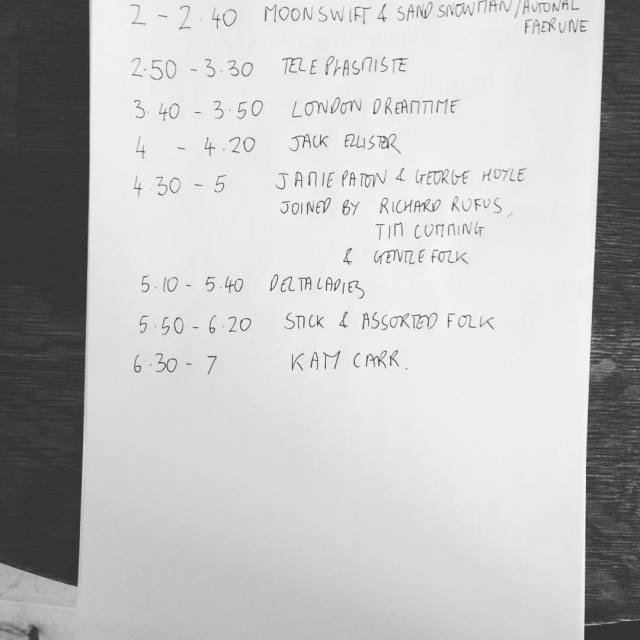 2 - 2.40 MOONSWIFT & SAND SNOWMAN/AUTONAL
FAERUNE
2.50 - 3.30 TELEPLASMISTE
3.40 - 3.50 LONDON DREAMTIME
4 - 4.20 JACK ELLISTER
4.30 - 5 JAMIE PATON & GEORGE HOYLE
JOINED BY RICHARD RUFUS,
TIM CUMMING
& GENTLE FOLK
5.10 - 5.40 DELTA LADIES
5.50 - 6.20 STICK & ASSORTED FOLK
6.30 - 7 KAM CARR.